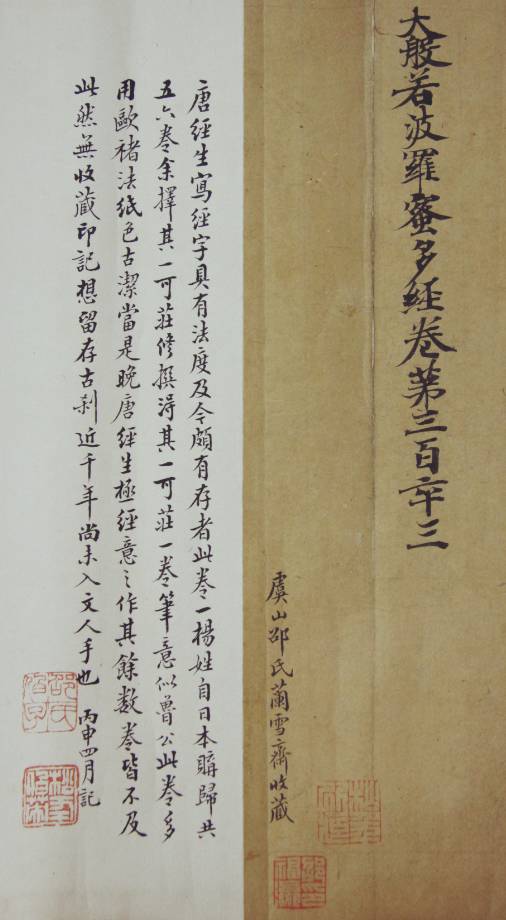 大般若波羅蜜多經卷第三百六十三
虞山邵氏蘭雪齋收藏
唐經生寫經字具有法度及今頗有存者此卷一楊姓自日本購歸共
五六卷余擇其一可莊修撰淂其一可莊一卷筆意似魯公此卷多
用歐褚法紙色古潔當是晚唐經生極經意之作其餘數卷皆不及
此然無收藏印記想留存古剎近千年尚未入文人手也 丙申四月記